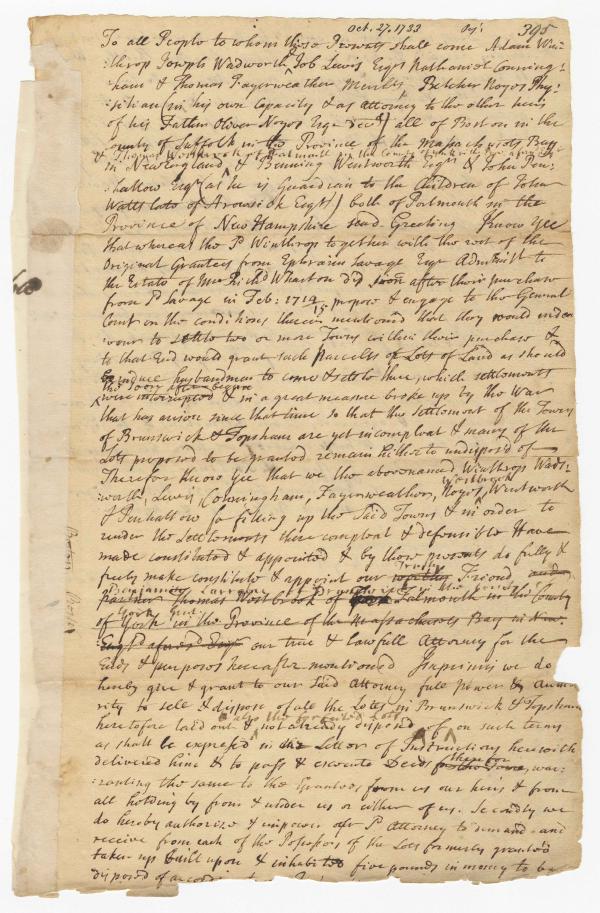 Oct. 27. 1733
395
To all People to whom these Presents shall come Adam Win-
:throp Joseph Wadsworth Job Lewis Esqrs Nathaniel Cunning:
:ham & Thomas Fayerweather Merchts, Belcher Noyes Phy-
:sitian (in his own Capacity & as attorney to the other heirs
of his Father Oliver Noyes Esqr decd) all of Boston in the
County of Suffolk in the Province of the Massachusets Bay
& Thomas Westbrook of Falmouth in the County
in New England, & Benning Wentworth Esqr & John Pen-
:hallow Esqr (as he is Guardian to the Children of John
Watts late of Arowsick Esqr) both of Portsmouth in the
Province of New Hampshire send Greeting Know Yee
that whereas the sd Winthrop together with the rest of the
Original Grantees from Ephraim Savage Esqr Admstr to
the Estate of Mr Richd Wharton decd soon after their purchase
from sd Savage in Feb: 1714 15 propose & engage to the General
Court on the conditions therein mentioned that they would endea
vour to settle two or more Towns within their purchase &
to that End would grant such Parcells or Lots of Land as should
induce husbandmen to come & settle there, which settlements
the soon after begun
were interrupted & in a great measure broke up by the War
that has arisen since that time so that the settlement of the Towns
of Brunswick & Topsham are yet incompleat & many of the
Lots proposed to be granted remain hitherto undisposd of
Therefor Know Yee that we the abovenamed Winthrop Wads:
Westbrook
:worth, Lewis Cunningham, Fayerweather, Noyes, Wentworth
& Penhallow for filling up the said Towns & in order to
render the Settlements there compleat & defensible Have
made constituted & appointed & by these presents do fully &
Trusty
freely make constitute & appoint our worthy Friend, and
Benjamin Larrabee of Brunswick in the County
partner Thomas Westbrook of Falmouth in the County
of York Gent
of York in the Province of the Massachusets Bay in New
Engld aforesd Esqr our true & lawfull Attorney for the
Ends & purposes hereafter mentioned Imprimis we do
hereby give & grant to our said Attorney full power & Autho
rity to sell & dispose of all the Lots in Brunswick & Topsham
& also the forfeited Lots
heretofore laid out & not already disposed of on such terms
as shall be expressd in the Letters of Instructions herewith
therefor
delivered him & to pass & execute Deeds for the same, war:
:ranting the same to the Grantees from us our heirs & from
all holding by from & under us or either of us. Secondly we
do hereby authorize & impower our sd Attorney to demand and
receive from each of the Possessors of the Lots formerly granted
taken up built upon & inhabited five pounds in money to be
disposed of